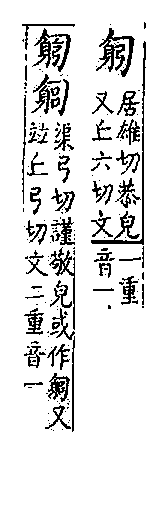 居雄切恭皃
又丘六切文
一重
音一
匑匔
渠弓切謹敬皃或作匑又
竝丘弓切文二重音一